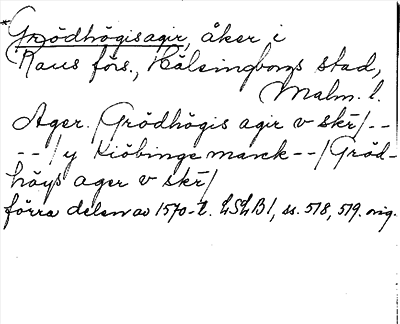 *Grödhögisagir, åker i
Raus förs., Hälsingborgs stad,
Malm. l.
Ager. /Grödhögis agir v skr/--
--/y Kiöbinge marck--/Gröd-
höys ager v skr/
förra delen av 1570-t. LSLB1, ss. 518, 519. orig.